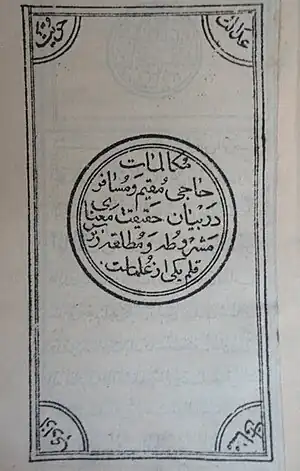 عدالت
حریت
مکالمات
حاجی مُقیم و مُسافر
در بیان حقیقت معنای
مشروطه و مطلقه از
قلم یکی از علماست